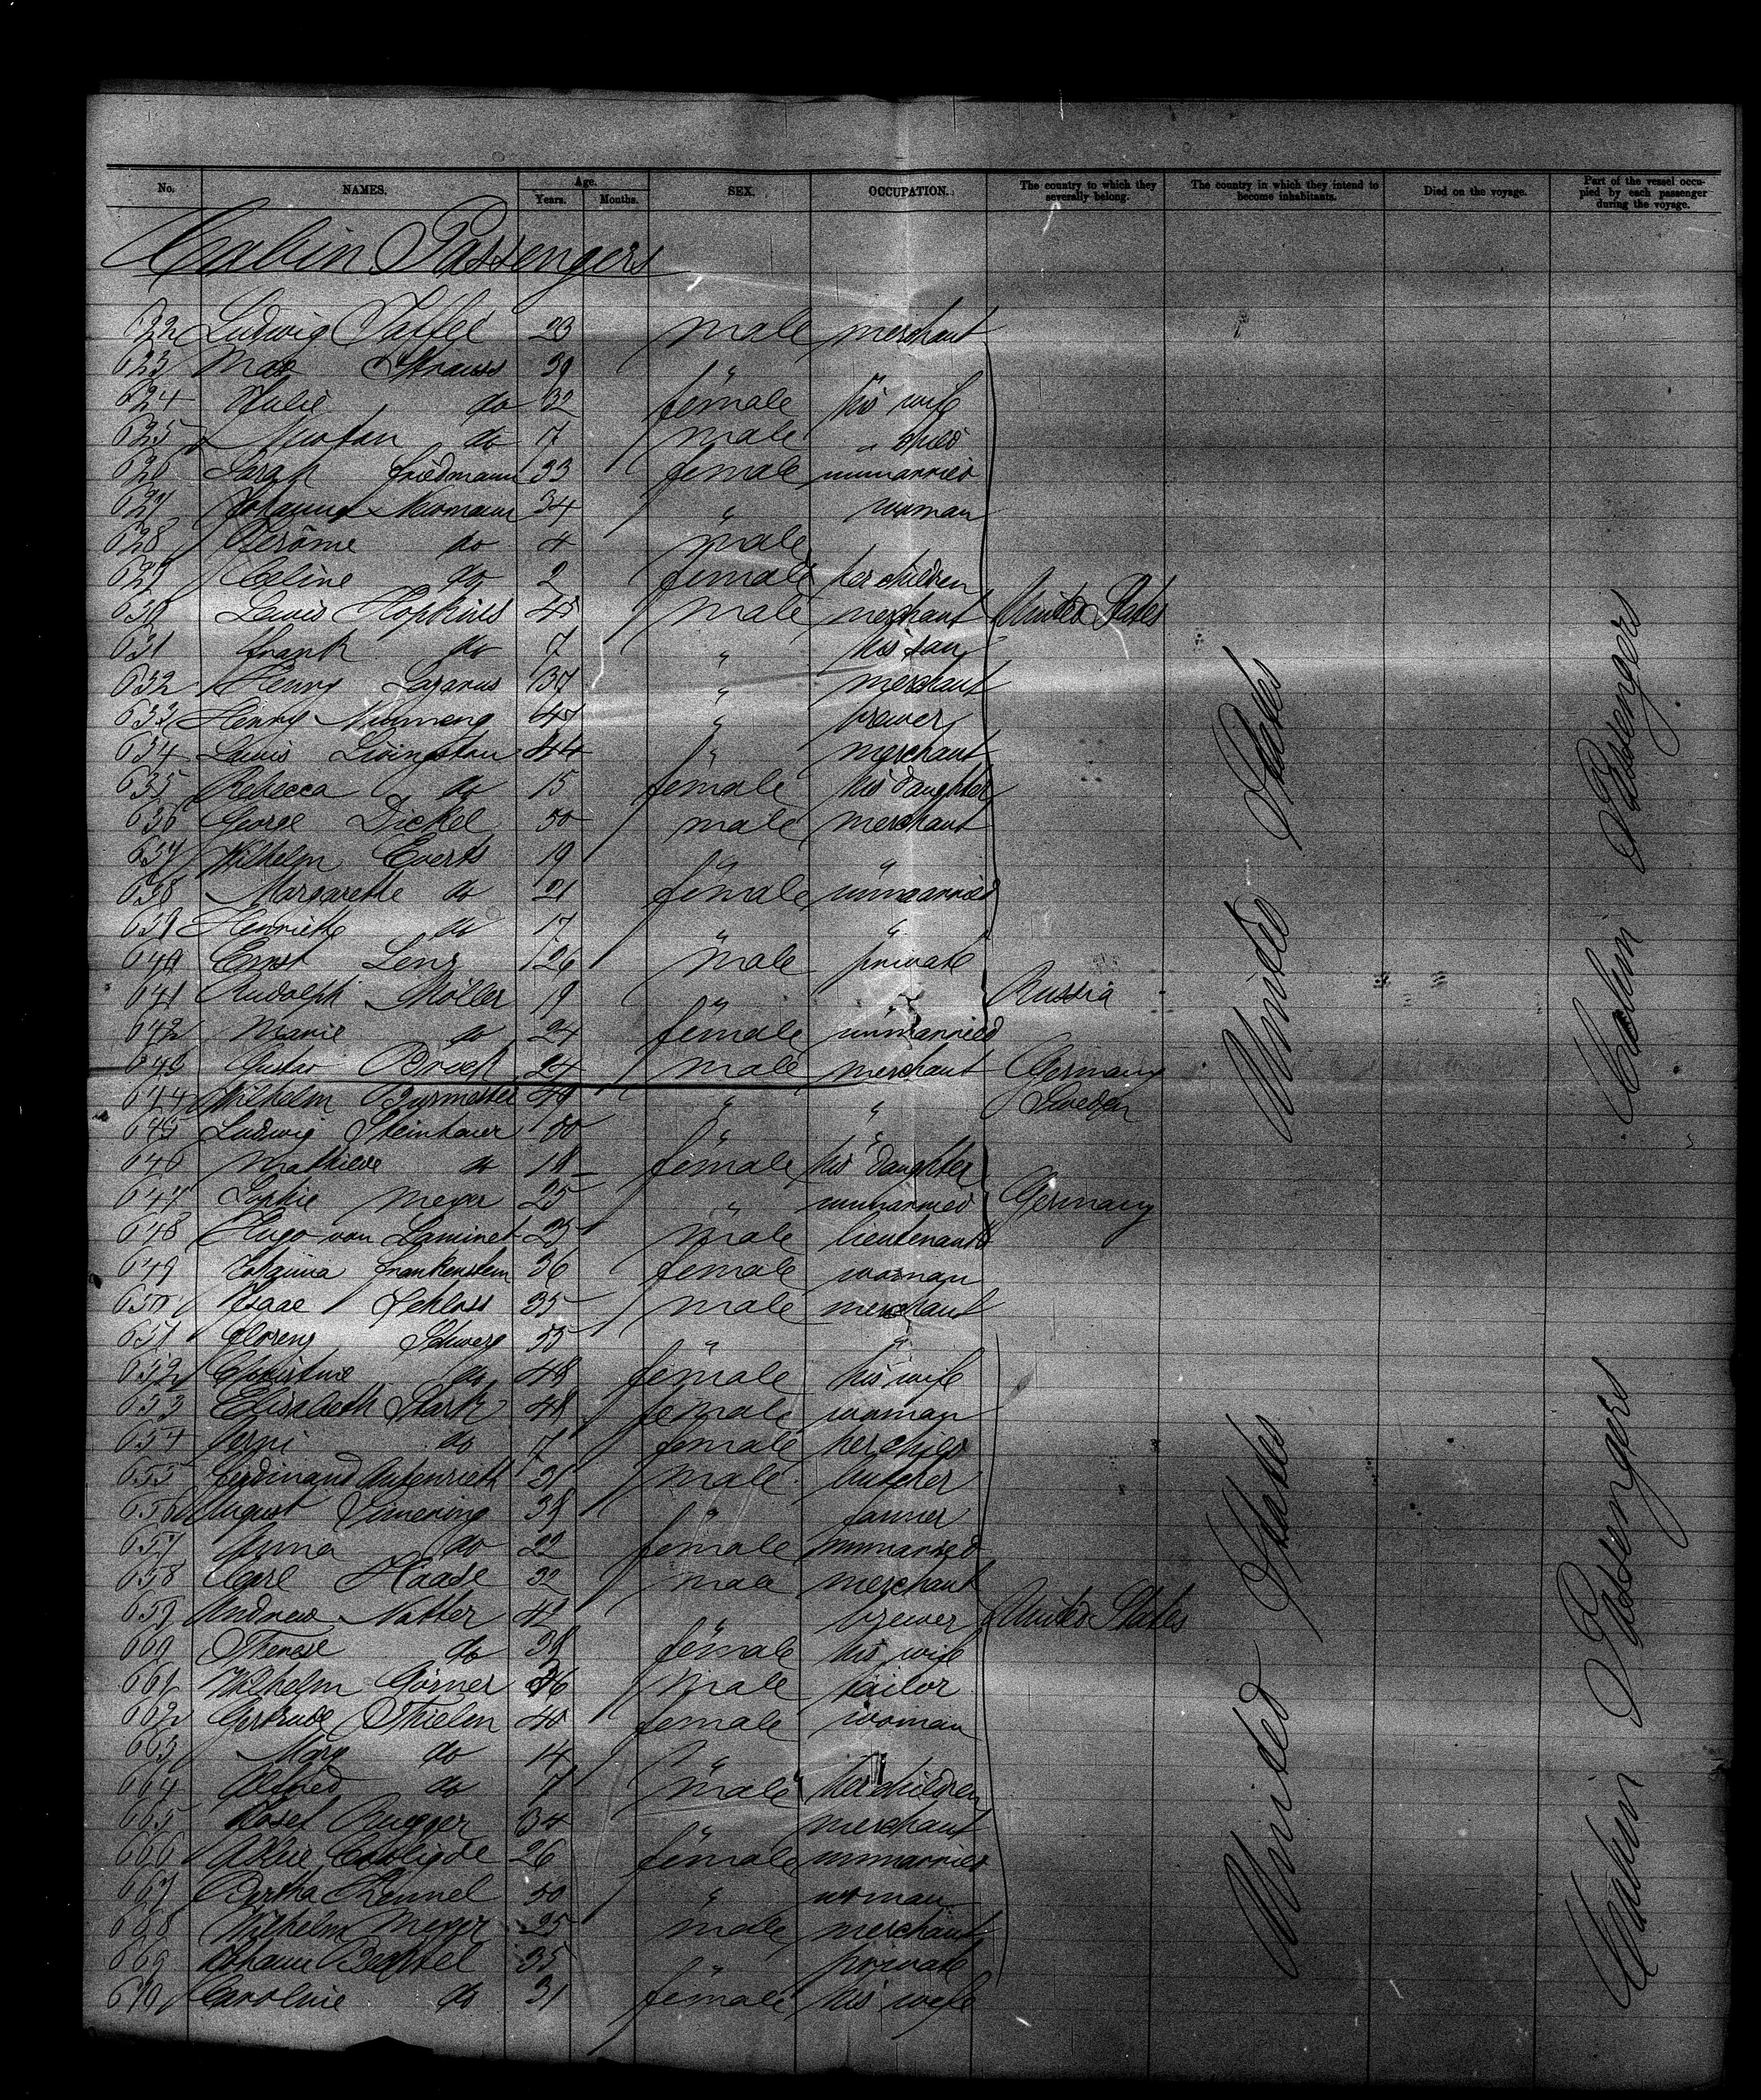 No. NAMES. Age. Years. Months. SEX. OCCUPATION. The country to which they severally belong. The country in which they intend to become inhabitants. Died on the voyage. Part of the vessel occupied by each passenger during the voyage.
Cabin Passengers
622 Ludwig 23 male merchant
623 Max Strauss 39 "
624 Julie do 32 female his wife
625 do 7 male " child
626 Sarah Friedmann 33 female unmarried
627 Johanna Neumann 34 " woman
628 Jerôme do 4 male
629 Celine do 2 female her children
630 Lewis Hopkins 45 male merchant United States
631 Frank do 7 " his son
632 Henry Lazarus 37 " merchant
633 Henry 47 " brewer
634 Lewis Livingston 44 " merchant
635 Rebecca do 15 female his daughter
636 George Dickel 50 male merchant
637 Wilhelm Everts 19 " "
638 Margarethe do 21 female unmarried
639 Henriette do 17 " "
640 Ernst Lenz 26 male private
641 Rudolph Möller 19 " " Russia
642 Marie do 24 female unmarried
643 Gustav Brock 24 male merchant Germany
644 Wilhelm Burmester 49 " " Sweden
645 Ludwig Steinhauer 50 " "
646 Mathilde do 18 female his daughter
647 Sophie Meyer 25 " unmarried Germany
648 Hugo von Laminet 25 male lieutenant
649 Johanna Frankenstein 36 female woman
650 Isaac Schloss 35 male merchant
651 Lorenz 55 " "
652 Christine do 48 female his wife
653 Elisabeth Stark 48 female woman
654 do 7 female her child
655 Ferdinand Autenrieth 21 male butcher
656 August 38 " farmer
657 Anna do 22 female unmarried
658 Carl Haase 32 male merchant
659 Andreas Natter 42 " brewer United States
660 Therese do 38 female his wife
661 Wilhelm Görner 46 male tailor
662 Gertrude Thielen 40 female woman
663 Mary do 14 "
664 Alfred do 7 male her children
665 Josef Brugger 34 " merchant
666 26 female unmarried
667 Bertha 50 " woman
668 Wilhelm Meyer 25 male merchant
669 Johann Bechtel 35 " private
670 Caroline do 31 female his wife
United States
Cabin Passengers
United States
Cabin Passengers